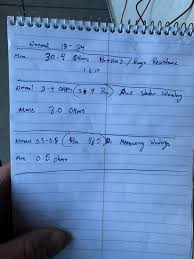 Normal 18 - 24
Mine 30.4 Ohms Brushes / Rings Resistance
1 & 10
Normal 2-4 Ohms (3 & 9 Stator Winding
Mine 3.0 Ohms
Normal 0.3-0.5 4&5) Measuring Windings
Mine 0.5 ohms